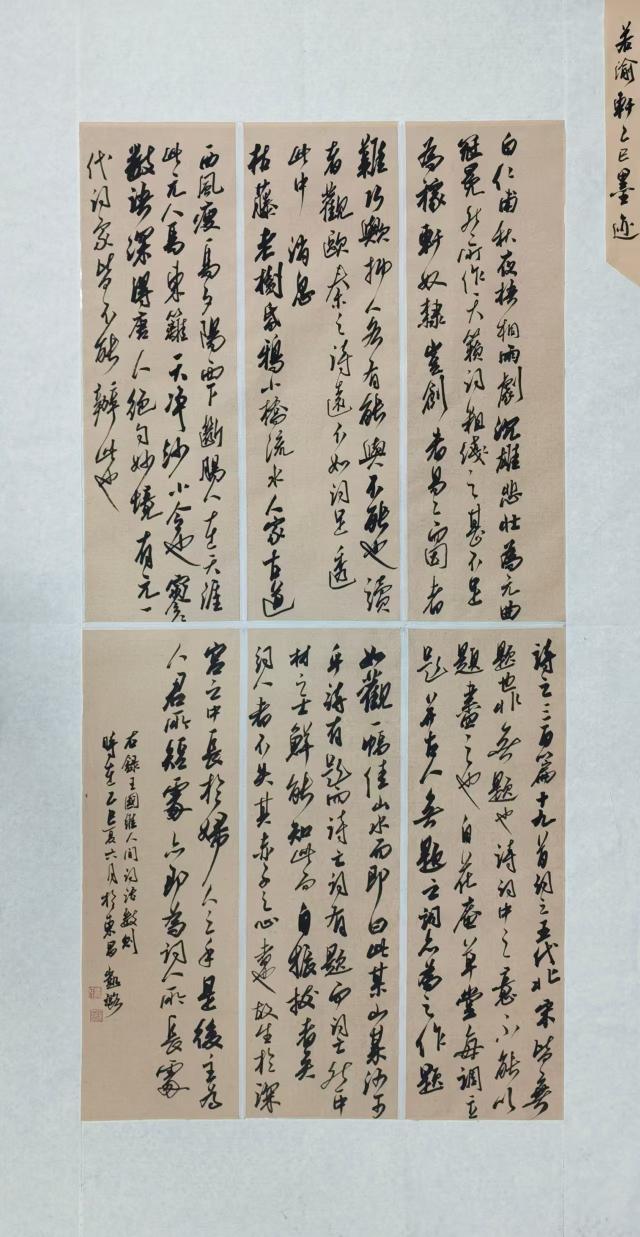 若渝軒乙巳墨迹
白仁甫秋夜梧桐雨劇沉雄悲壯為元曲
冠冕然所作天籟詞粗淺之甚不足
為稼軒奴隸豈創者易工因者
難巧歟抑人各有能與不能也讀
者觀歐秦之詩遠不如詞足透
此中消息
枯藤老樹昏鴉小橋流水人家古道
西風瘦馬夕陽西下斷腸人在天涯
此元人馬東籬天淨沙小令也寥寥
數語深得唐人絕句妙境有元一
代詞家皆不能辦此也
詩之三百篇十九首詞之五代北宋皆無
題也非無題也詩詞中之意不能以
題盡之也自花庵草堂每調立
題并古人無題之詞亦為之作題
如觀一幅佳山水而即曰此某山某河可
乎詩有題而詩亡詞有題而詞亡然中
材之士鮮能知此而自振拔者矣
詞人者不失其赤子之心者也故生於深
宮之中長於婦人之手是後主為
人君所短處亦即為詞人所長處
右錄王國維人間詞話數則
時在乙巳夏六月於東昌